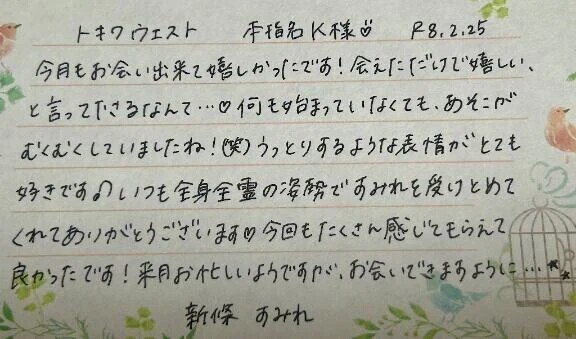 トキワウエスト 本指名K様♡ R8.2.25
今月もお会い出来て嬉しかったです！会えただけで嬉しい、
と言って下さるなんて…♡何も始まっていなくても、あそこが
むくむくしていましたね！(笑)うっとりするような表情がとても
好きです♪いつも全身全霊の姿勢ですみれを受けとめて
くれてありがとうございます♡今回もたくさん感じてもらえて
良かったです！来月お忙しいようですが、お会いできますように…
新條 すみれ